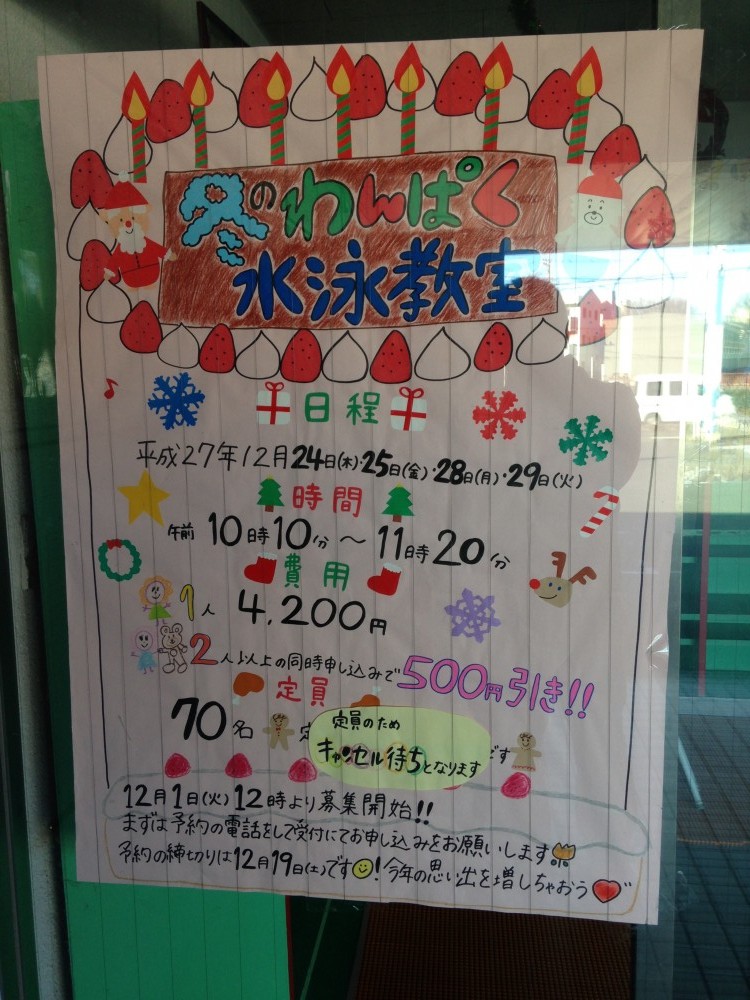 冬のわんぱく
水泳教室
日程
平成27年12月24日(木)・25日(金)・28日(月)・29日(火)
時間
午前 10時10分～11時20分
費用
1人 4,200円
2人以上の同時申し込みで500円引き!!
定員
70名 定 です
定員のため
キャンセル待ちとなります
12月1日(火)12時より募集開始!!
まずは予約の電話をして受付にてお申し込みをお願いします
予約の締切りは12月19日(土)です!今年の思い出を増しちゃおう